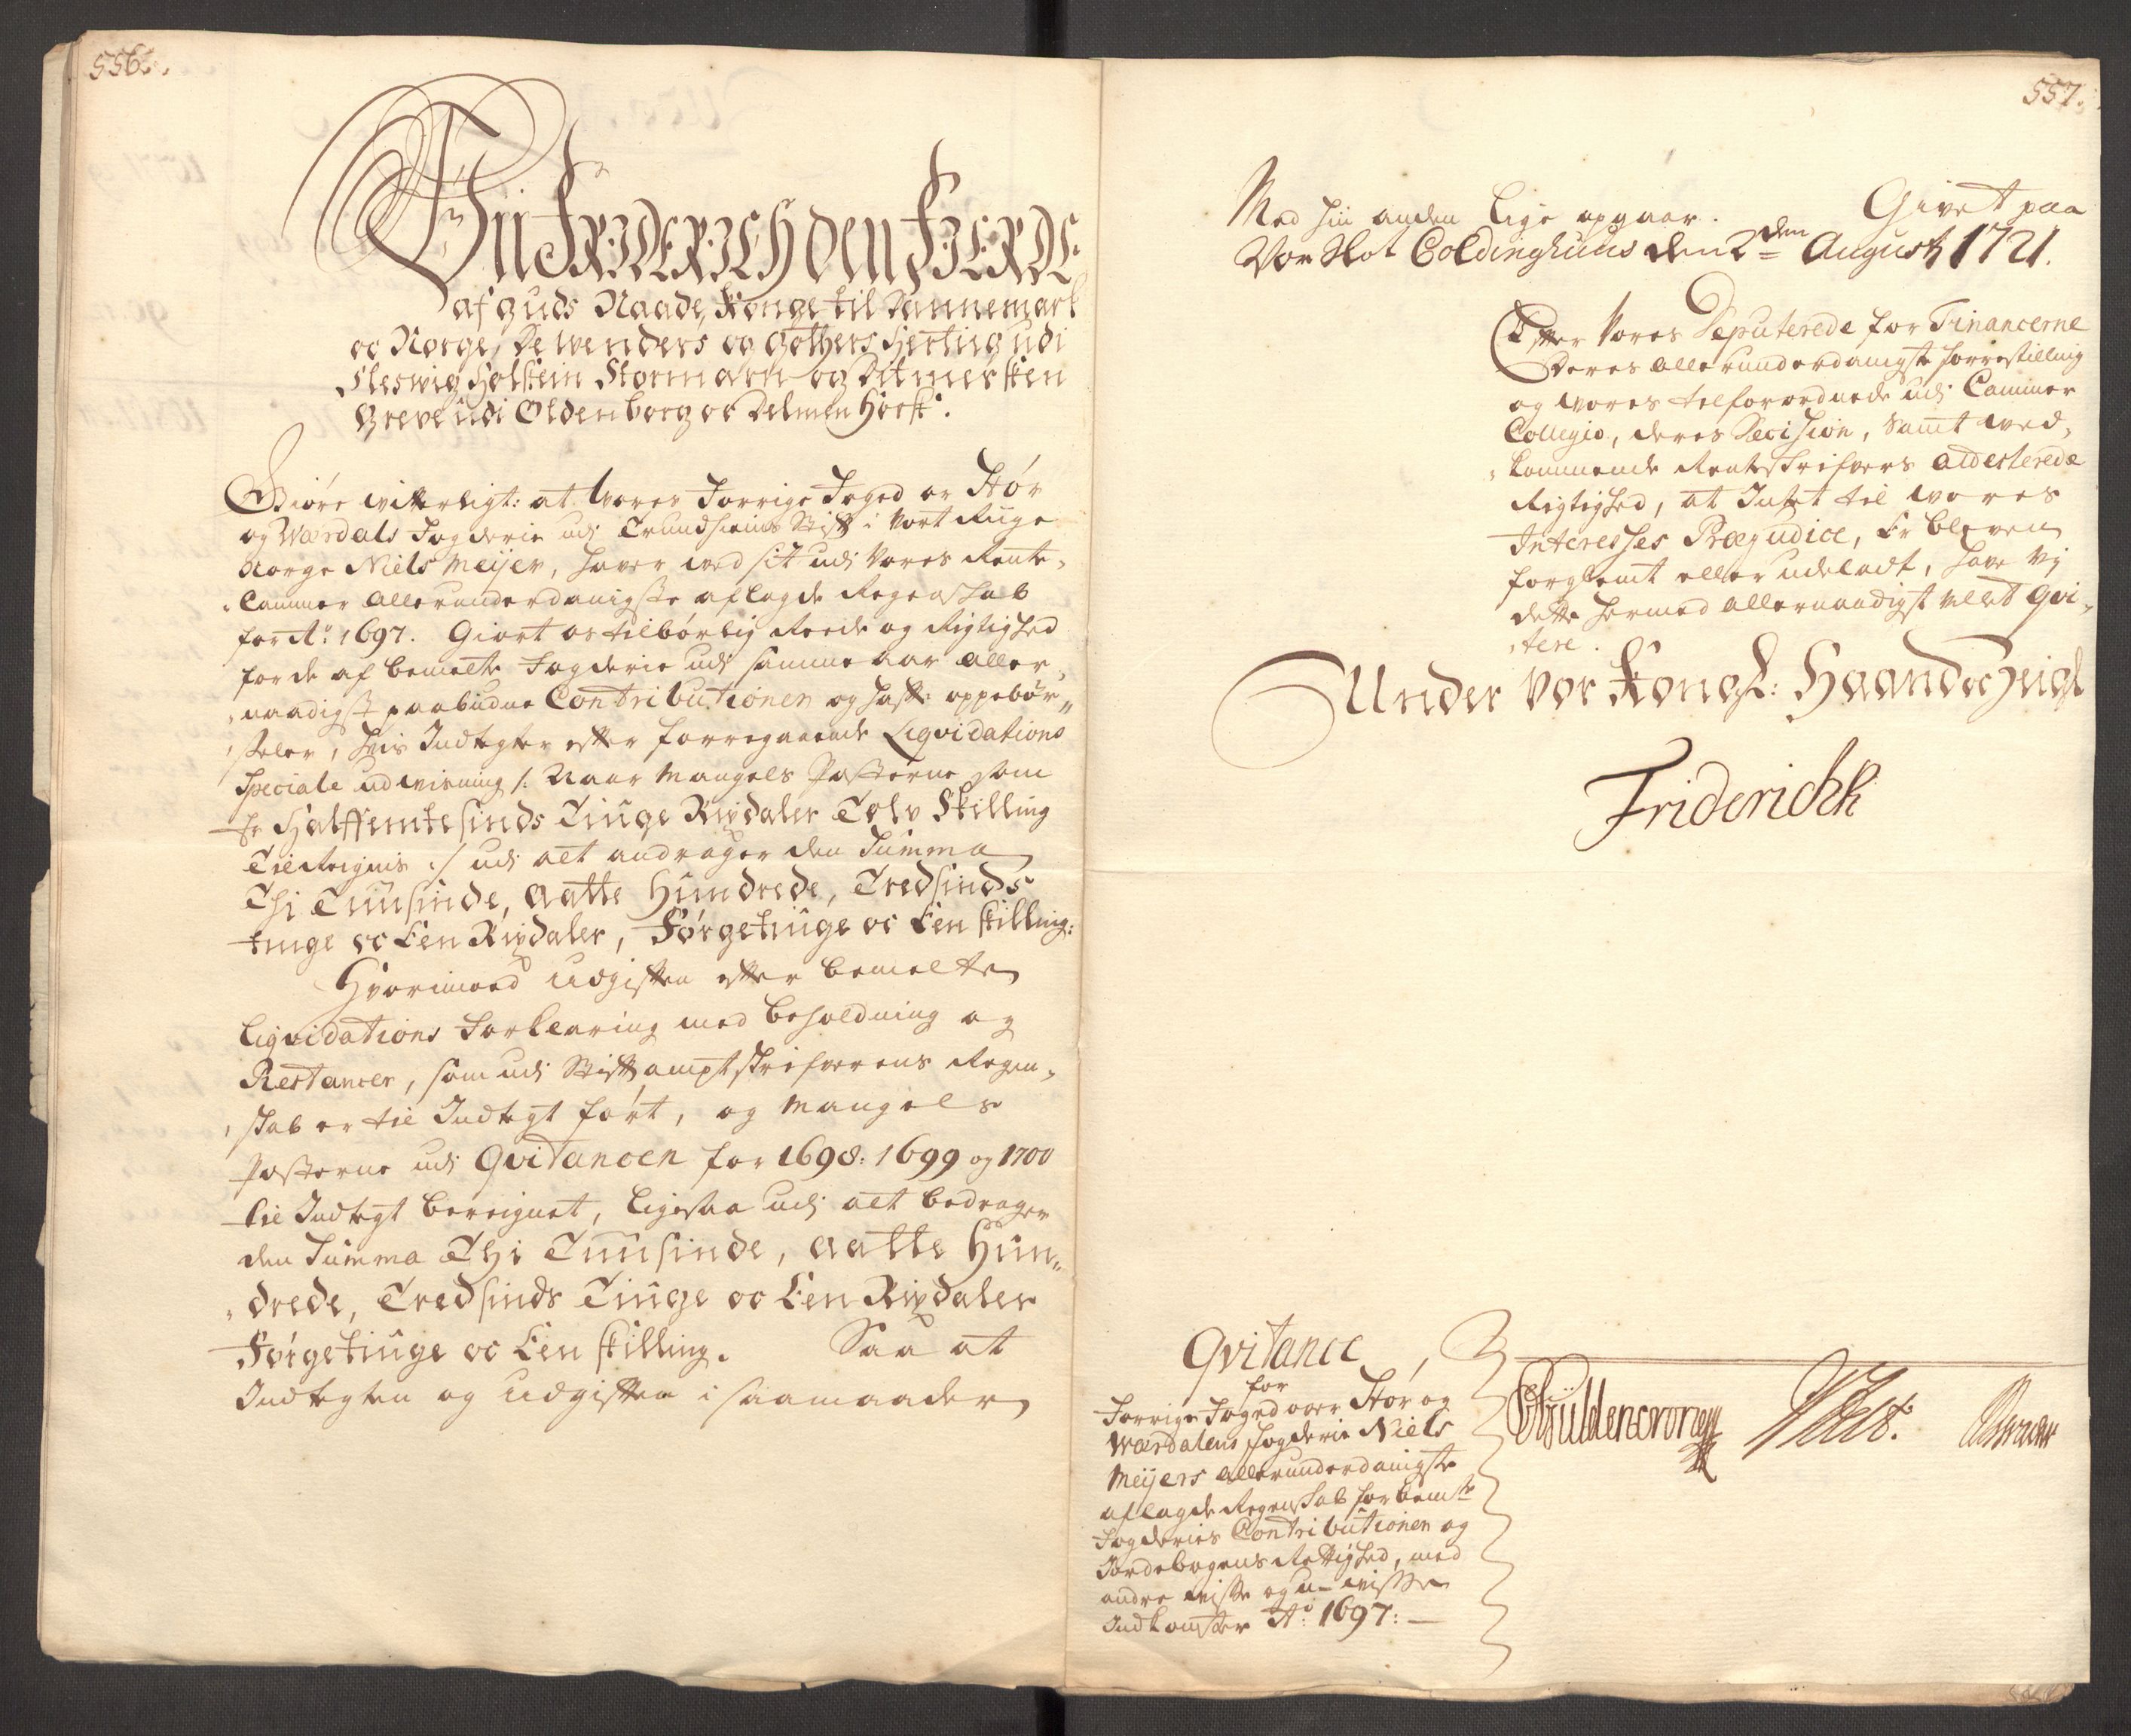 556.
Vii FRIDERICH den FIERDE
af guds Naade, Konge til Dannemark
oc Norge, De wenders og Gothers Hertug udi
Sleswig Holstein Stormarn og Ditmersken
Greve udi Oldenborg oc Delmenhorst.
Giøre witterligt: at Vores Forrige Foged ov Stør
og Wærdals Fogderie udi Trundhiems Stift i Vort Riige
Norge Niels Meijer, haver ved sit udi Vores Rente,
Cammer allerunderdanigste aflagde Regenskab
for Aº 1697. Giort os tilbørlig Reede og Rigtighed
for de af bemelte Fogderie udi samme aar aller,
naadigst paabudne Contributioner og hafte oppebør„
seler, hvis Indtegter efter forregaaende Liqvidations
Speciale udwisning /: Naar Mangels Posterne som
er Halffemtesinds Tiuge Rixdaler Tolv Skilling
Tilreignis :/ udi alt andrager den Summa
Thi Tuusinde, Aatte Hundrede, Tredsinds
tiuge oc Een Rixdaler, Førgetiuge oc Een skilling:
Hvorimoed Udgiften efter bemelte
Liqvidations Forklaring med beholdning og
Restancer, som udi Stiftamptskrifverens Regen,
skab er til Indtegt ført, og Mangels
Posterne udi Qvitancen for 1698: 1699 og 1700
til Indtegt bereignet, ligesaa udi alt bedrager
den Summa Thi Tuusinde, Aatte Hun„
drede, Tredsinds Tiuge oc Een Rixdaler
Førgetiuge oc Een skilling. Saa at
Indtegten og Udgiften i saamaader
557.
Med hin anden lige opgaar. Givet paa
Vor Slot Coldinghuus den 2den Augusti 1721.
Efter Vores Deputerede for Financerne
Deres allerunderdanigste forrestilling
og Vores tilforordnede udi Cammer
Collegio, deres Decision, samt ved,
kommende Rentskrifvers attesterede
Rigtighed, at Intet til Vores
Interesses Præjudice, Er bleven
forglemt eller udeladt, have Vj
dette hermed allernaadigst villet Qvi,
tere.
Under Vor Kongl: Haand oc Zeigl
Friderich R
Qvitance,
for
Forrige Foged over Stør og
Wærdalens Fogderie Niels
Meijers allerunderdanigste
aflagde Regenskab for bemte
Fogderies Contributioner og
Jordebogens Rettighed, med
andre visse og u-visse
Indkomster Aº: 1697:
CGüldencrone